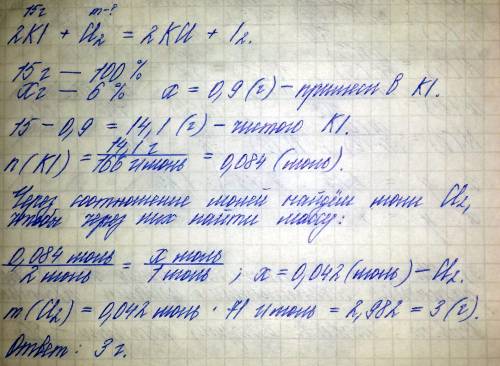 15г m-?
2KI + Cl₂ = 2KCl + I₂.
15 г — 100 %
x г — 6 % x = 0,9 (г) - примеси в KI.
15 - 0,9 = 14,1 (г) - чистого KI.
n(KI) = 14,1 г / 166 г/моль = 0,084 (моль).
Через соотношение молей найдём моли Cl₂,
чтобы через них найти массу:
0,084 моль / 2 моль = x моль / 1 моль ; x = 0,042 (моль) - Cl₂.
m(Cl₂) = 0,042 моль · 71 г/моль = 2,982 = 3 (г).
Ответ: 3 г.